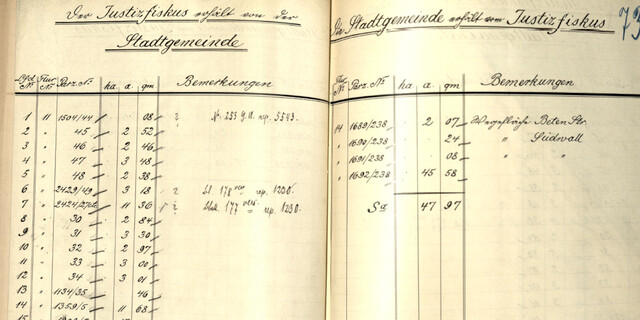 Der Justizfiskus erhält von der
Stadtgemeinde
Lfd. Nr. Flur Nr. Parz. Nr. ha a qm Bemerkungen
1 11 1504/44 08 N. 233 rep. 5543.
2 " 45 2 52
3 " 46 2 46
4 " 47 3 48
5 " 48 2 38
6 " 2429/49 3 18 rep. 1230.
7 " 11 36 177 rep. 1230.
8 " 30 2 84
9 " 31 3 30
10 " 32 2 97
11 " 33 3 00
12 " 34 3 01
13 " 1134/35 46
14 " 1359/5 11 68
15
Die Stadtgemeinde erhält vom Justizfiskus
73
Flur Nr. Parz. Nr. ha a qm Bemerkungen
14 1689/238 2 07 Wegefläche Beten Str.
" 1690/238 24 " Südwall
" 1691/238 08 " "
" 1692/238 45 58
Sa 47 97